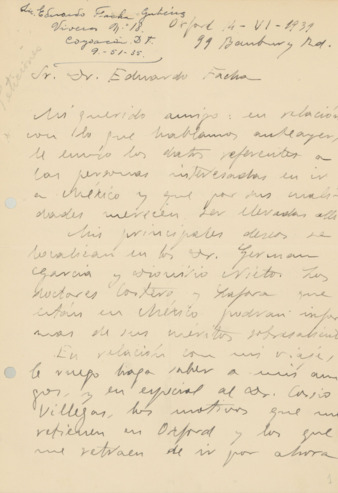 Dr. Eduardo Facha Gutiérrez
Viveros Nº 18
Coyoacán D.F.
9-51-55.
Oxford, 4-VI-1939
99 Banbury Rd.
Peticiones
Sr. Dr. Eduardo Facha
Mi querido amigo: en relación
con lo que hablamos anteayer,
le envío los datos referentes a
las personas interesadas en ir
a México y que por sus cuali
dades merecen ser llevadas allí
Mis principales deseos se
localizan en los Dr. German
Garcia y Dionisio Nieto. Los
doctores Costero y Lafora que
están en México podrán infor
mas de sus méritos sobresalientes
En relación con mi viaje,
le ruego haga saber a mis ami
gos, y en especial al Dr. Cosio
Villegas, los motivos que me
retienen en Oxford y los que
me retraen de ir por ahora